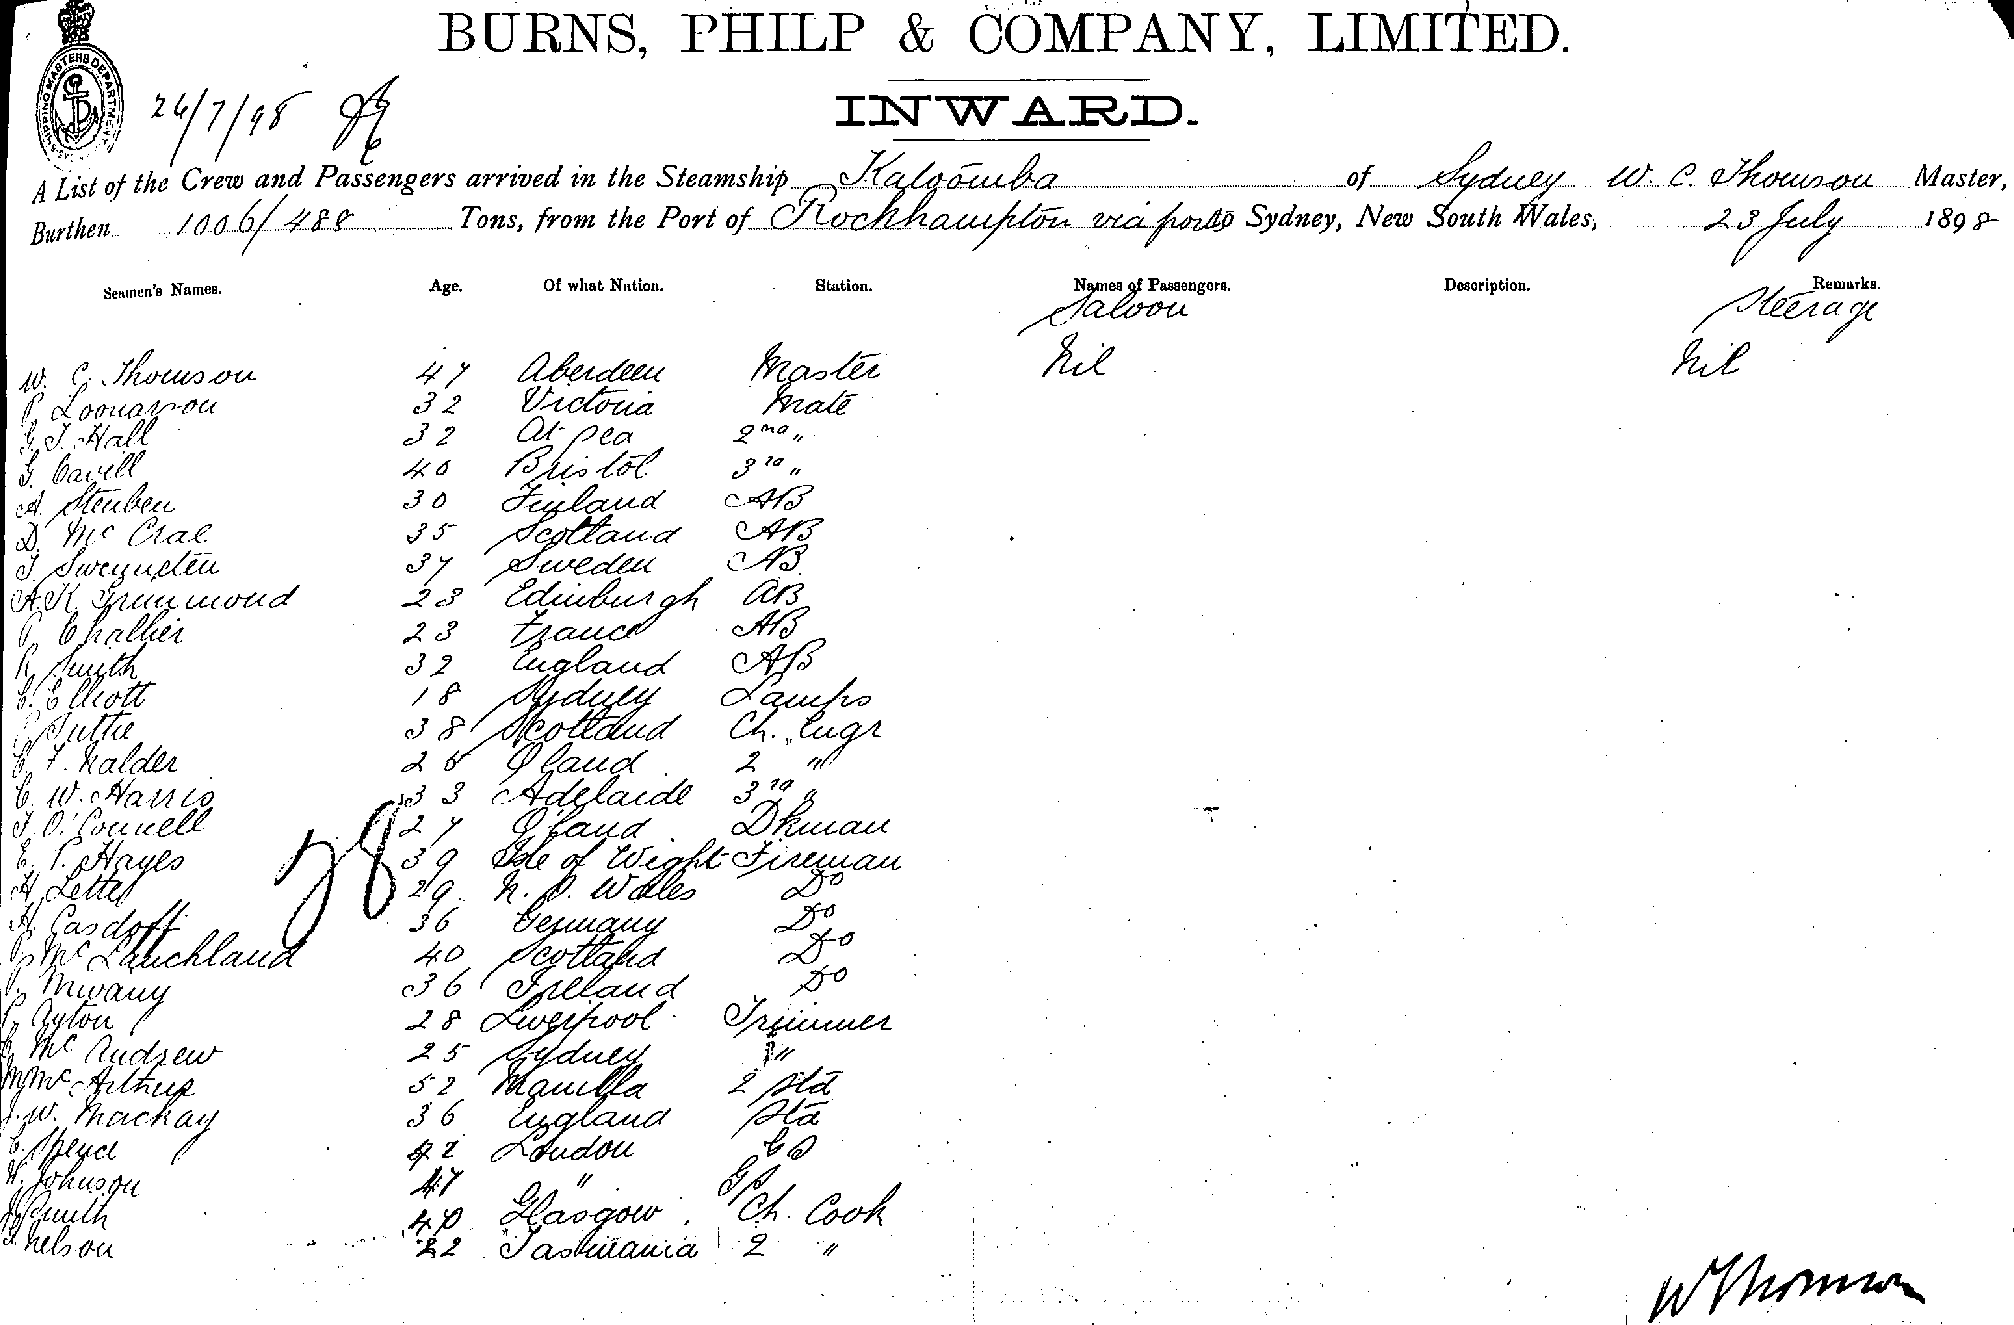 BURNS, PHILP & COMPANY, LIMITED.
INWARD.
SHIPPING MASTERS DEPARTMENT
26/7/98
A List of the Crew and Passengers arrived in the Steamship Kaloomba of Sydney W. C. Thomson Master,
Burthen 1006/488 Tons, from the Port of Rockhampton via ports Sydney, New South Wales, 23 July 1898
Seamen's Names. Age. Of what Nation. Station. Names of Passengers. Description. Remarks.
Saloon Steerage
W. C. Thomson 47 Aberdeen Master Nil Nil
32 Victoria Mate
G. T. Hall 32 At Sea 2nd "
G. Cavill 40 Bristol 3rd "
A. Steuben 30 Finland AB
D. Mc Crae 35 Scotland AB
37 Sweden AB
A. K. Grummond 23 Edinburgh AB
P. Challier 23 France AB
R. Smith 32 England AB
C. Elliott 18 Sydney Lamps
38 Scotland Ch. Engr
F. Nalder Qland 2 "
C. W. Harris 33 Adelaide 3rd "
O'Connell 27 Q'land Dkman
E. P. Hayes 39 Isle of Wight Fireman
28
H. Lette 29 N. S. Wales Do
H. Gasdoff 36 Germany Do
Mc Lauchland 40 Scotland Do
36 Ireland Do
Ayton 28 Liverpool Trimmer
Mc Andrew 25 Sydney "
M. Mc Arthur 52 Manilla 2 Std
J. W. Mackay 36 England Std
C. Spence 42 London
Johnson 47 "
Smith 40 Glasgow Ch. Cook
Nelson 22 Tasmania 2 "
W Thomson